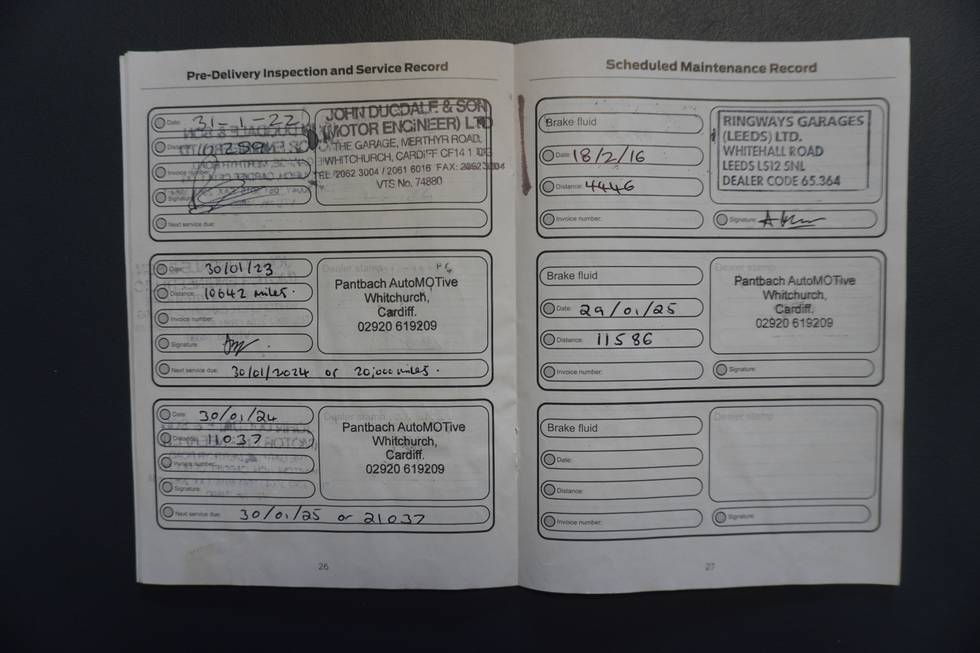 Pre-Delivery Inspection and Service Record
Date: 31-1-22
Distance:
Invoice number:
Signature:
Next service due:
JOHN DUGDALE & SON
(MOTOR ENGINEER) LTD
THE GARAGE, MERTHYR ROAD,
WHITCHURCH, CARDIFF CF14 1
TEL 2062 3004 / 2061 6016 FAX: 2062 3004
VTS No. 74880
Date: 30/01/23
Distance: 10642 miles.
Invoice number:
Signature:
Next service due: 30/01/2024 or 20,000 miles.
Dealer stamp
Pantbach AutoMOTive
Whitchurch,
Cardiff.
02920 619209
Date: 30/01/24
Distance: 11037
Invoice number:
Signature:
Next service due: 30/01/25 or 21037
Dealer stamp
Pantbach AutoMOTive
Whitchurch,
Cardiff.
02920 619209
26
Scheduled Maintenance Record
Brake fluid
Date: 18/2/16
Distance: 4446
Invoice number:
RINGWAYS GARAGES
(LEEDS) LTD.
WHITEHALL ROAD
LEEDS LS12 5NL
DEALER CODE 65.364
Signature:
Brake fluid
Date: 29/01/25
Distance: 11586
Invoice number:
Dealer stamp
Pantbach AutoMOTive
Whitchurch,
Cardiff.
02920 619209
Signature:
Brake fluid
Date:
Distance:
Invoice number:
Dealer stamp
Signature:
27